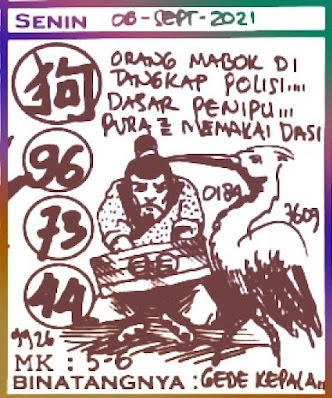 SENIN 06-SEPT-2021
狗
ORANG MABOK DI
TANGKAP POLISI....
DASAR PENIPU...
PURA2 MEMAKAI DASI
96
73
44
0189
3609
9926
MK : 5-6
BINATANGNYA : GEDE KEPALA..